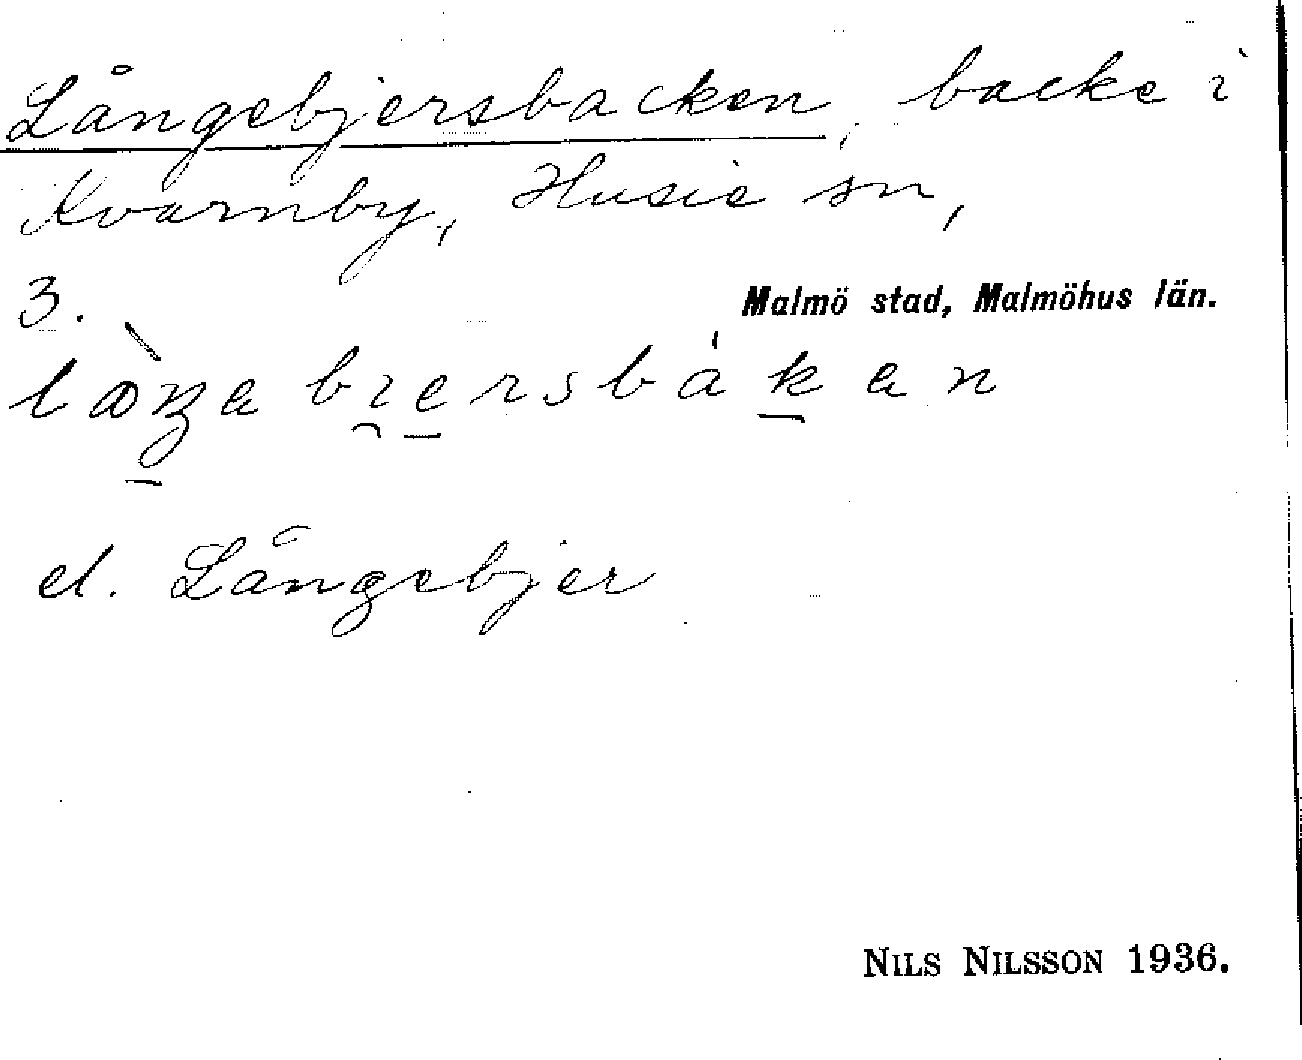 Långebjersbacken, backe i
Kvarnby, Husie sn,
3.
Malmö stad, Malmöhus län.
el. Långebjer
NILS NILSSON 1936.